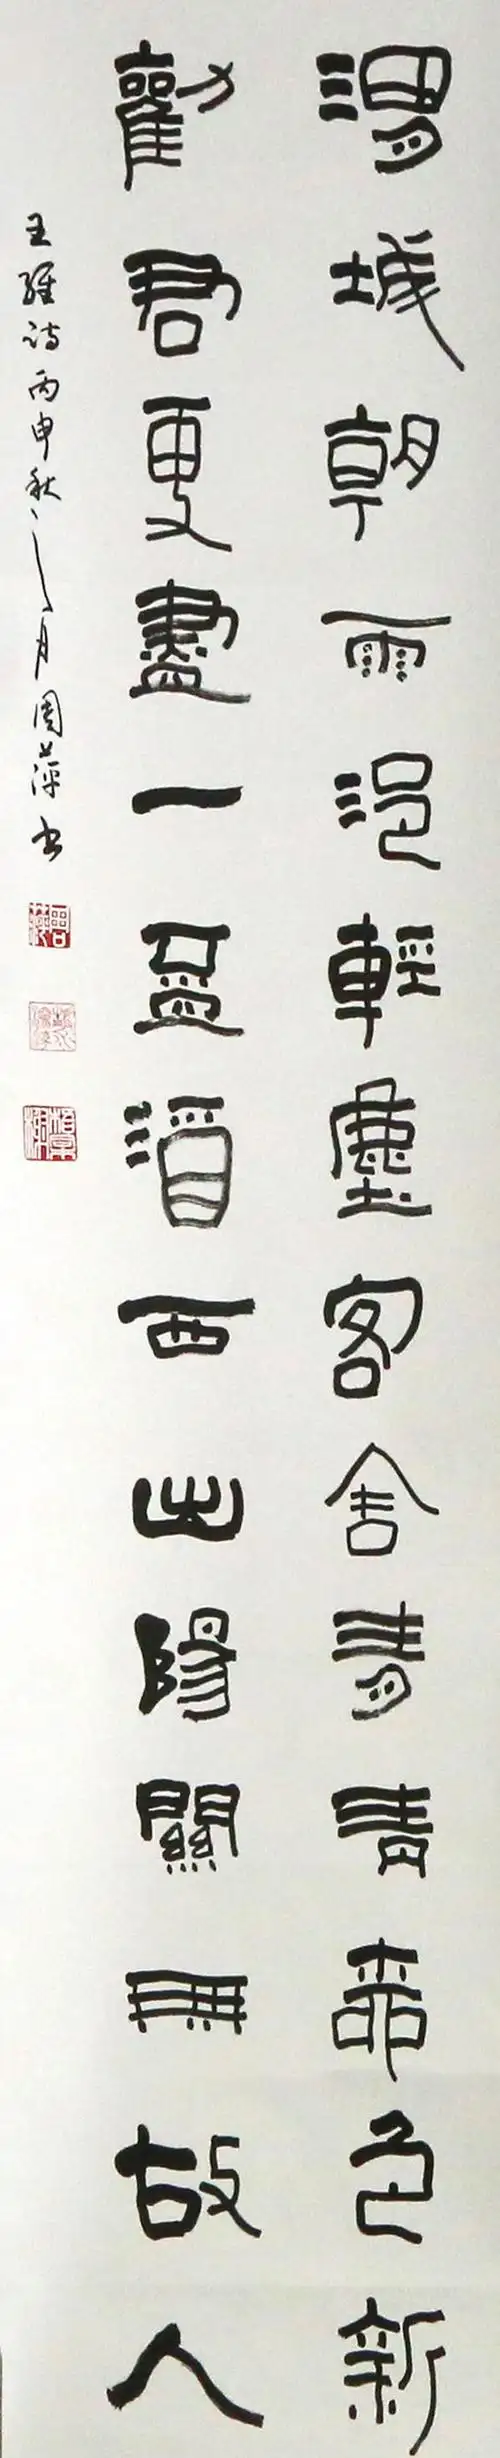 渭城朝雨浥輕塵客舍青青柳色新
勸君更盡一盃酒西出陽關無故人
王維诗丙申秋之月周萍书
周萍